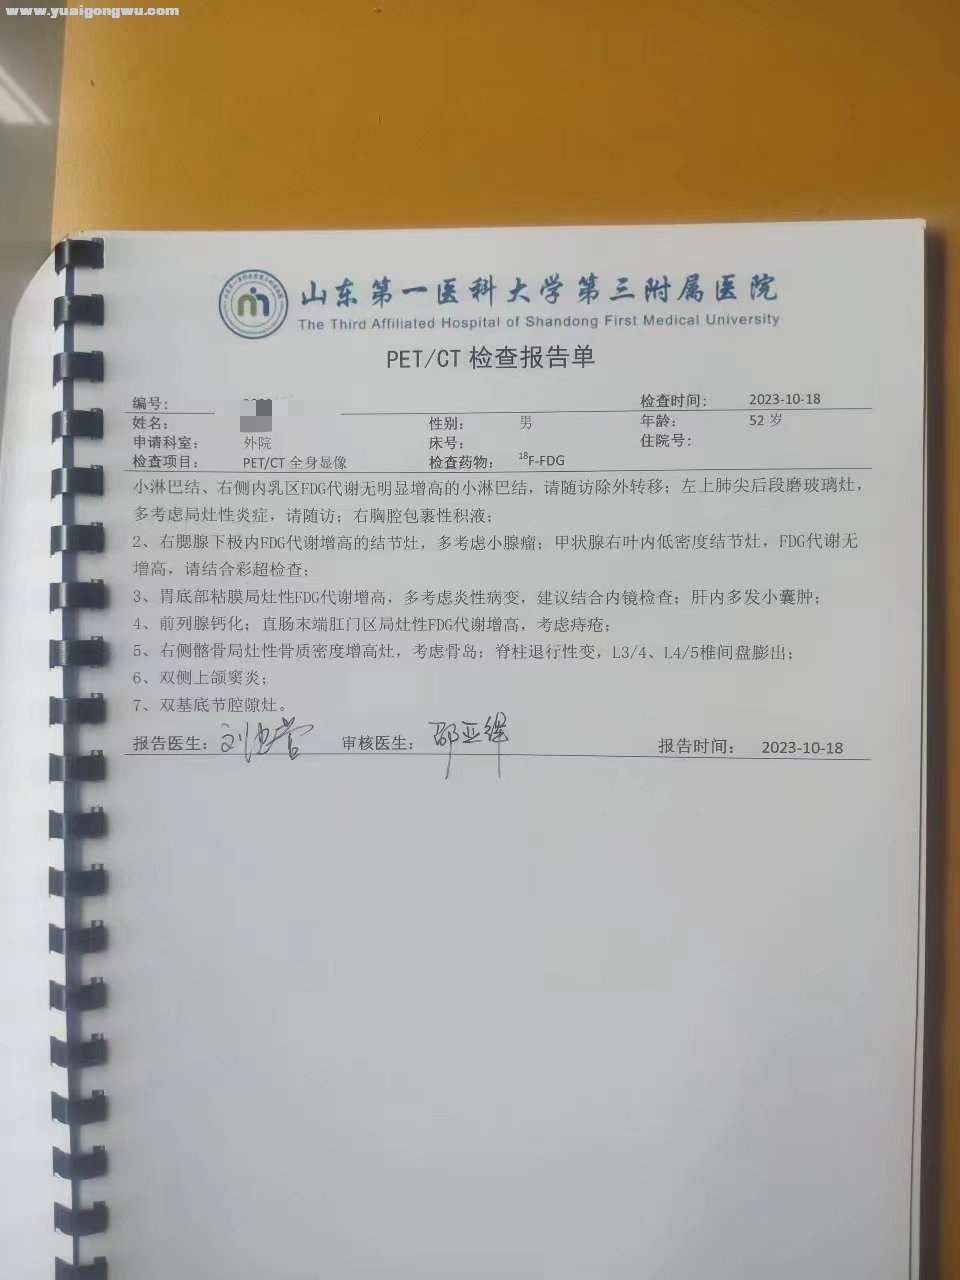 www.yuaigongwu.com
山东第一医科大学第三附属医院
The Third Affiliated Hospital of Shandong First Medical University
PET/CT 检查报告单
编号: 检查时间: 2023-10-18
姓名: 性别: 男 年龄: 52 岁
申请科室: 外院 床号: 住院号:
检查项目: PET/CT 全身显像 检查药物: 18F-FDG
小淋巴结、右侧内乳区FDG代谢无明显增高的小淋巴结，请随访除外转移；左上肺尖后段磨玻璃灶，
多考虑局灶性炎症，请随访；右胸腔包裹性积液；
2、右腮腺下极内FDG代谢增高的结节灶，多考虑小腺瘤；甲状腺右叶内低密度结节灶，FDG代谢无
增高，请结合彩超检查；
3、胃底部粘膜局灶性FDG代谢增高，多考虑炎性病变，建议结合内镜检查；肝内多发小囊肿；
4、前列腺钙化；直肠末端肛门区局灶性FDG代谢增高，考虑痔疮；
5、右侧髂骨局灶性骨质密度增高灶，考虑骨岛；脊柱退行性变，L3/4、L4/5椎间盘膨出；
6、双侧上颌窦炎；
7、双基底节腔隙灶。
报告医生: 审核医生: 邵亚 报告时间: 2023-10-18